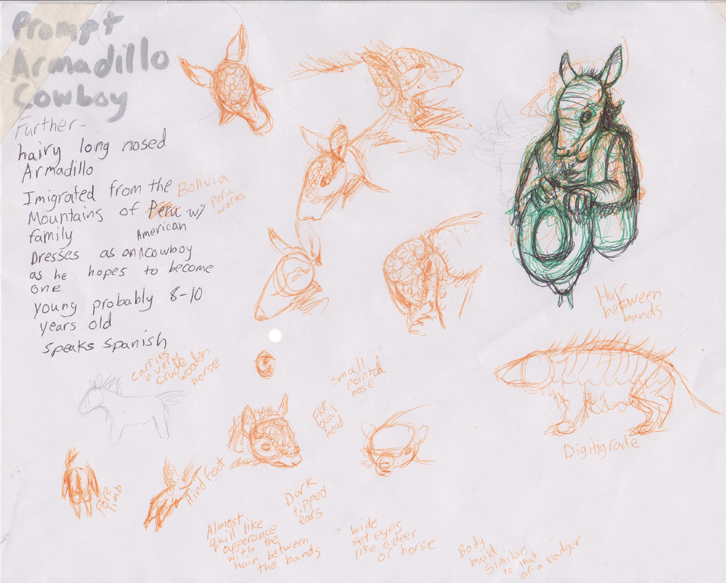 Prompt
Armadillo
Cowboy
Further-
hairy long nosed
Armadillo
Imigrated from the Bolivia
Mountains of Peru w/ Peru works
family American
Dresses as an cowboy
as he hopes to become
one
young probably 8-10
years old
speaks spanish
carries
a very
crude wooden
horse
small
pointed
nose
Hair
between
bands
Digitigrade
Fore
limb
Hind foot
Dark
tipped
ears
Almost
quill like
apperance
with the
hair between
the bands
wide
set eyes
like a deer
or horse
Body
build
similar
to that
of a badger